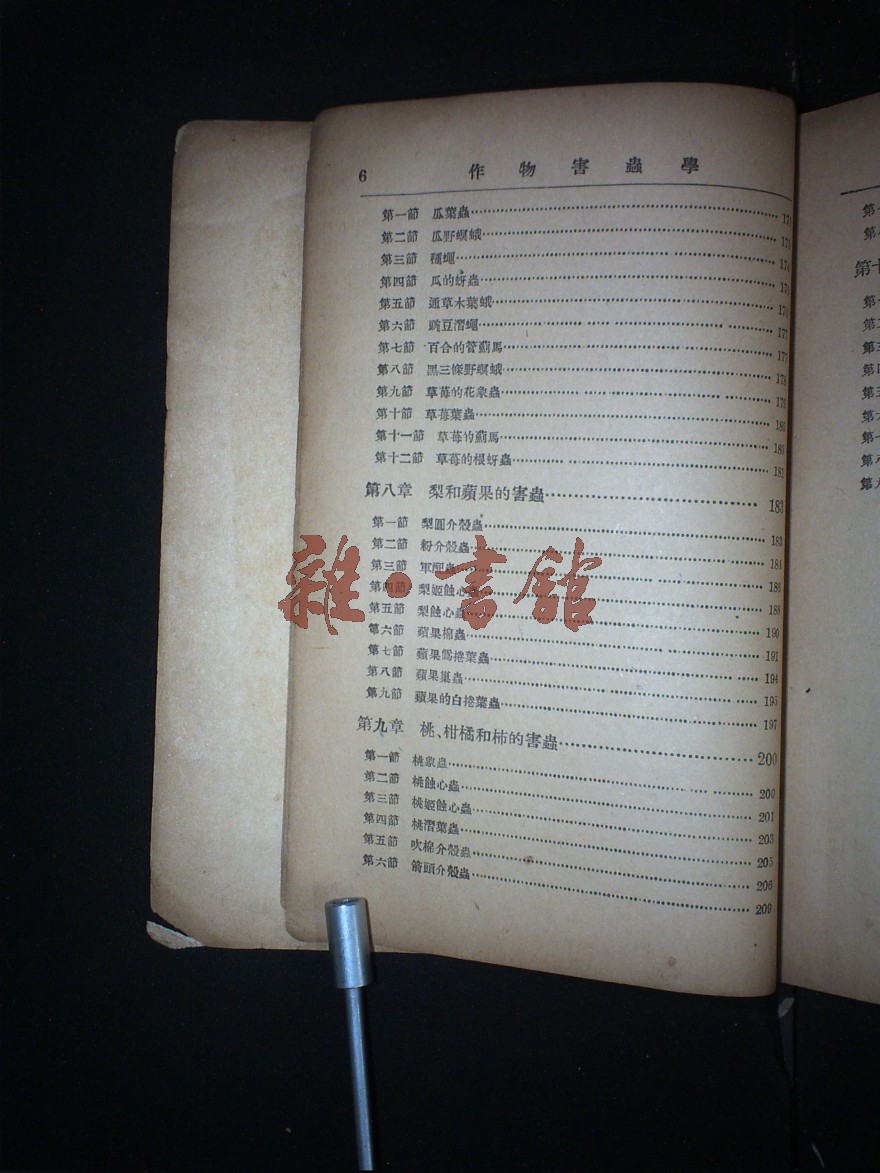 6 作物害蟲學
第一節 瓜葉蟲 171
第二節 瓜野螟蛾 173
第三節 種蠅 174
第四節 瓜的蚜蟲 175
第五節 通草木葉蛾 176
第六節 豌豆潛蠅 177
第七節 百合的管薊馬 177
第八節 黑三條野螟蛾 178
第九節 草莓的花象蟲 179
第十節 草莓葉蟲 180
第十一節 草莓的薊馬 180
第十二節 草莓的根蚜蟲 181
第八章 梨和蘋果的害蟲 183
第一節 梨圓介殼蟲 183
第二節 粉介殼蟲 184
第三節 軍配蟲 186
第四節 梨姬蝕心蟲 188
第五節 梨蝕心蟲 190
第六節 蘋果棉蟲 191
第七節 蘋果捲葉蟲 194
第八節 蘋果巢蟲 195
第九節 蘋果的白捲葉蟲 197
第九章 桃、柑橘和柿的害蟲 200
第一節 桃象蟲 200
第二節 桃蝕心蟲 201
第三節 桃姬蝕心蟲 203
第四節 桃潛葉蟲 205
第五節 吹棉介殼蟲 206
第六節 箭頭介殼蟲 209
雜·書館